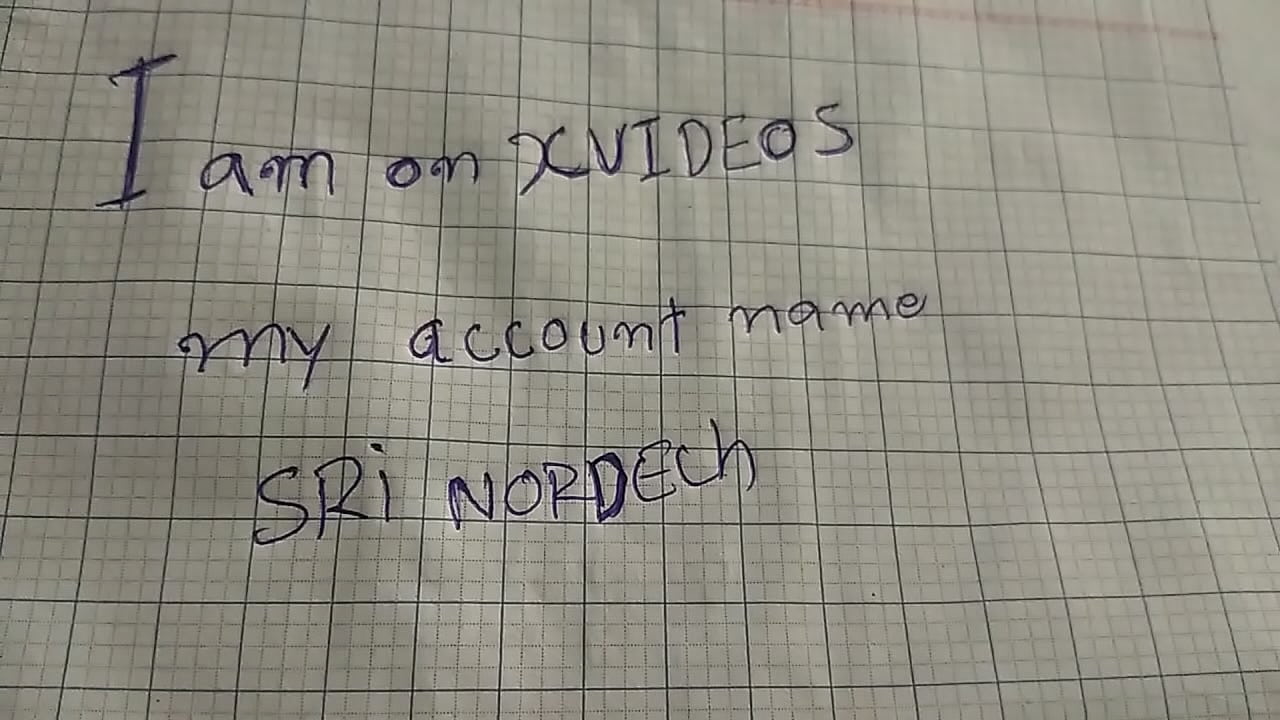 I am on XVIDEOS
my account name
SRi NORDECh